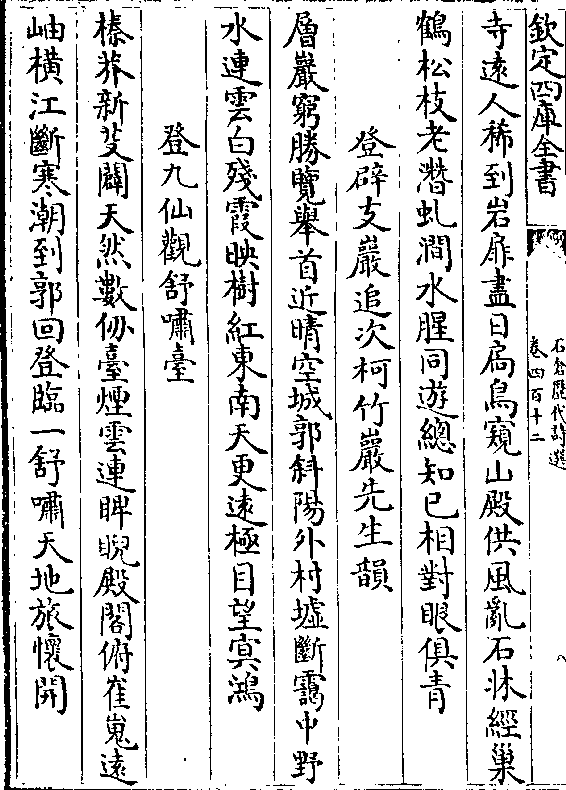 欽定四庫全書
石倉歷代詩選
卷四百十二
八
寺遠人稀到岩扉盡日扃鳥窺山殿供風亂石牀經巢
鶴松枝老潛虬澗水腥同遊總知已相對眼俱青
登辟支巖追次柯竹巖先生韻
層巖窮勝覽舉首近晴空城郭斜陽外村墟斷靄中野
水連雲白殘霞映樹紅東南天更遠極目望㝠鴻
登九仙觀舒嘯臺
榛莽新芟闢天然數仭臺煙雲連睥睨殿閣俯崔嵬遠
岫橫江斷寒潮到郭回登臨一舒嘯天地旅懷開